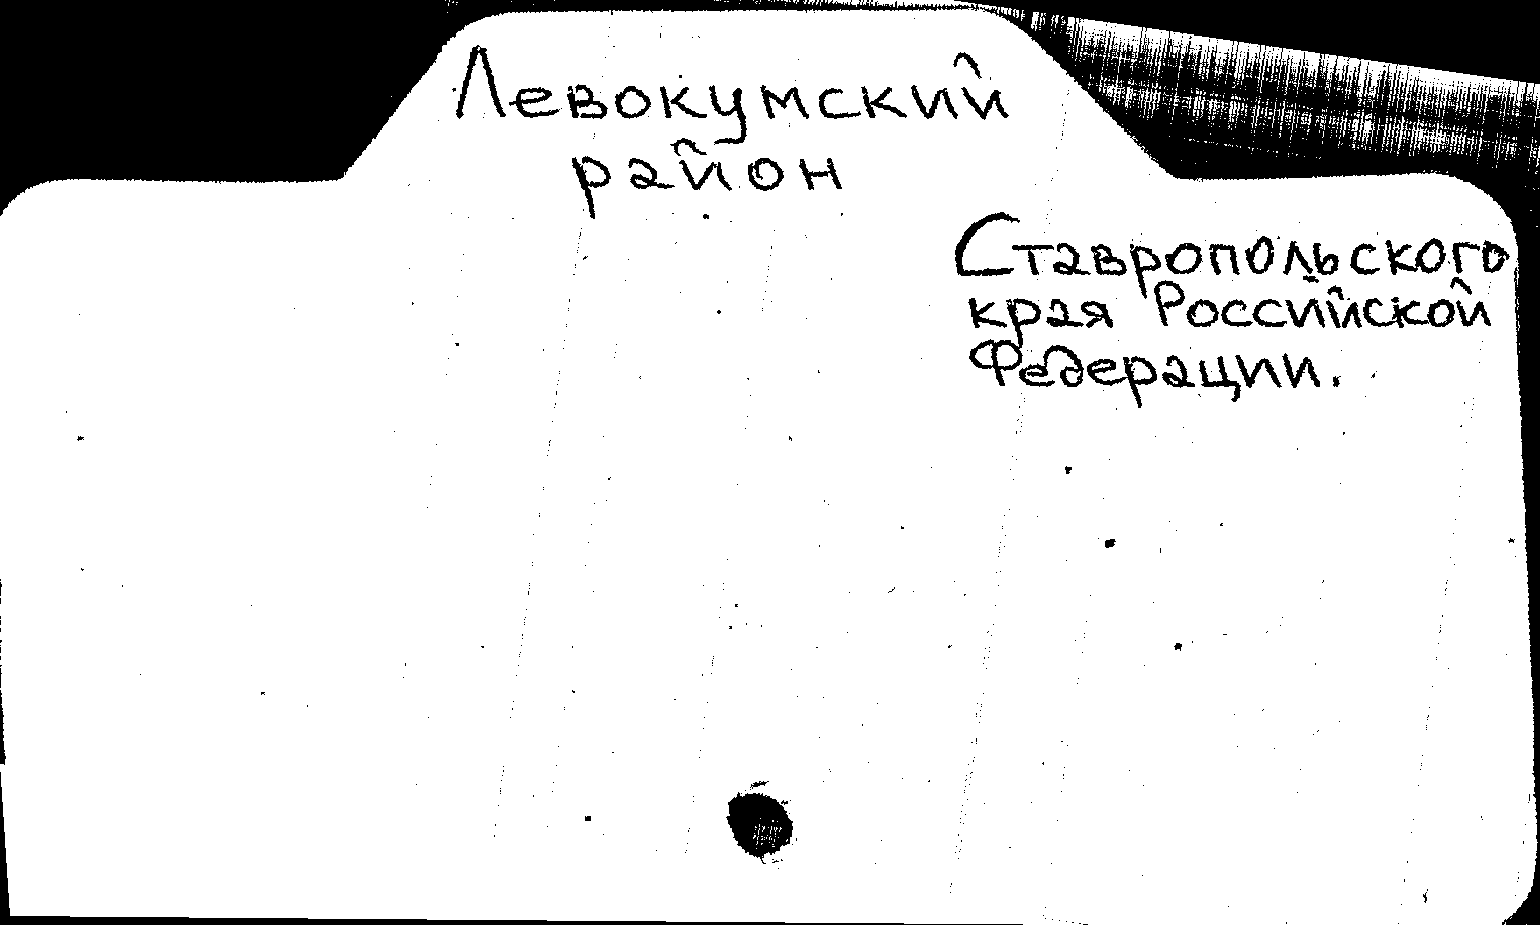 Левокумский
район
Ставропольского
края Российской
Федерации.